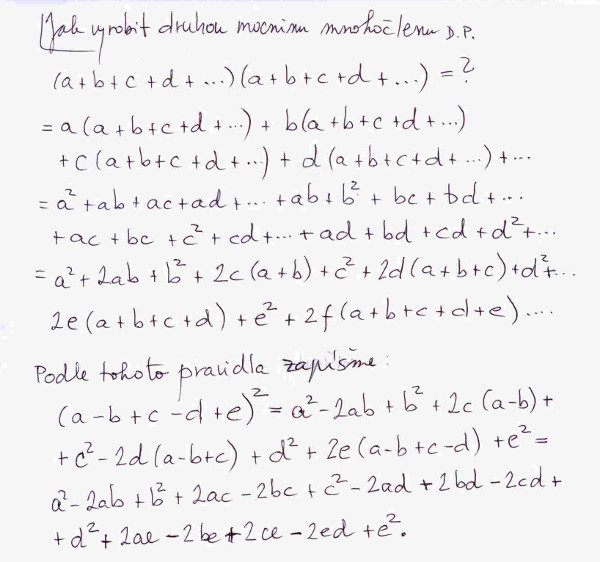 Jak vyrobit druhou mocninu mnohočlenu D.P.
(a+b+c+d+...)(a+b+c+d+...) = ?
= a(a+b+c+d+...) + b(a+b+c+d+...)
+c(a+b+c+d+...) + d(a+b+c+d+...)+...
= a²+ab+ac+ad+... +ab+b²+bc+bd+...
+ac+bc+c²+cd+...+ad+bd+cd+d²+...
= a²+2ab+b²+2c(a+b)+c²+2d(a+b+c)+d²+...
2e(a+b+c+d)+e²+2f(a+b+c+d+e)....
Podle tohoto pravidla zapišme:
(a-b+c-d+e)² = a²-2ab+b²+2c(a-b)+
+c²-2d(a-b+c)+d²+2e(a-b+c-d)+e²=
a²-2ab+b²+2ac-2bc+c²-2ad+2bd-2cd+
+d²+2ae-2be+2ce-2ed+e².